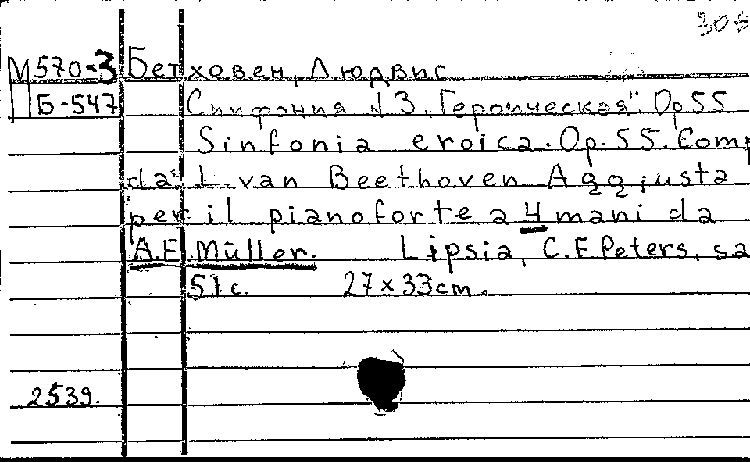 305
М 570-3 Бетховен, Людвиг
Б-547 Симфония №3 „Героическая". Op 55
Sinfonia eroica. Op. 55. Comp
da L. van Beethoven Aggiusta
per il pianoforte a 4 mani da
A.E. Müller. Lipsia, C.F. Peters, sa
51 c. 27x33cm.
2539.